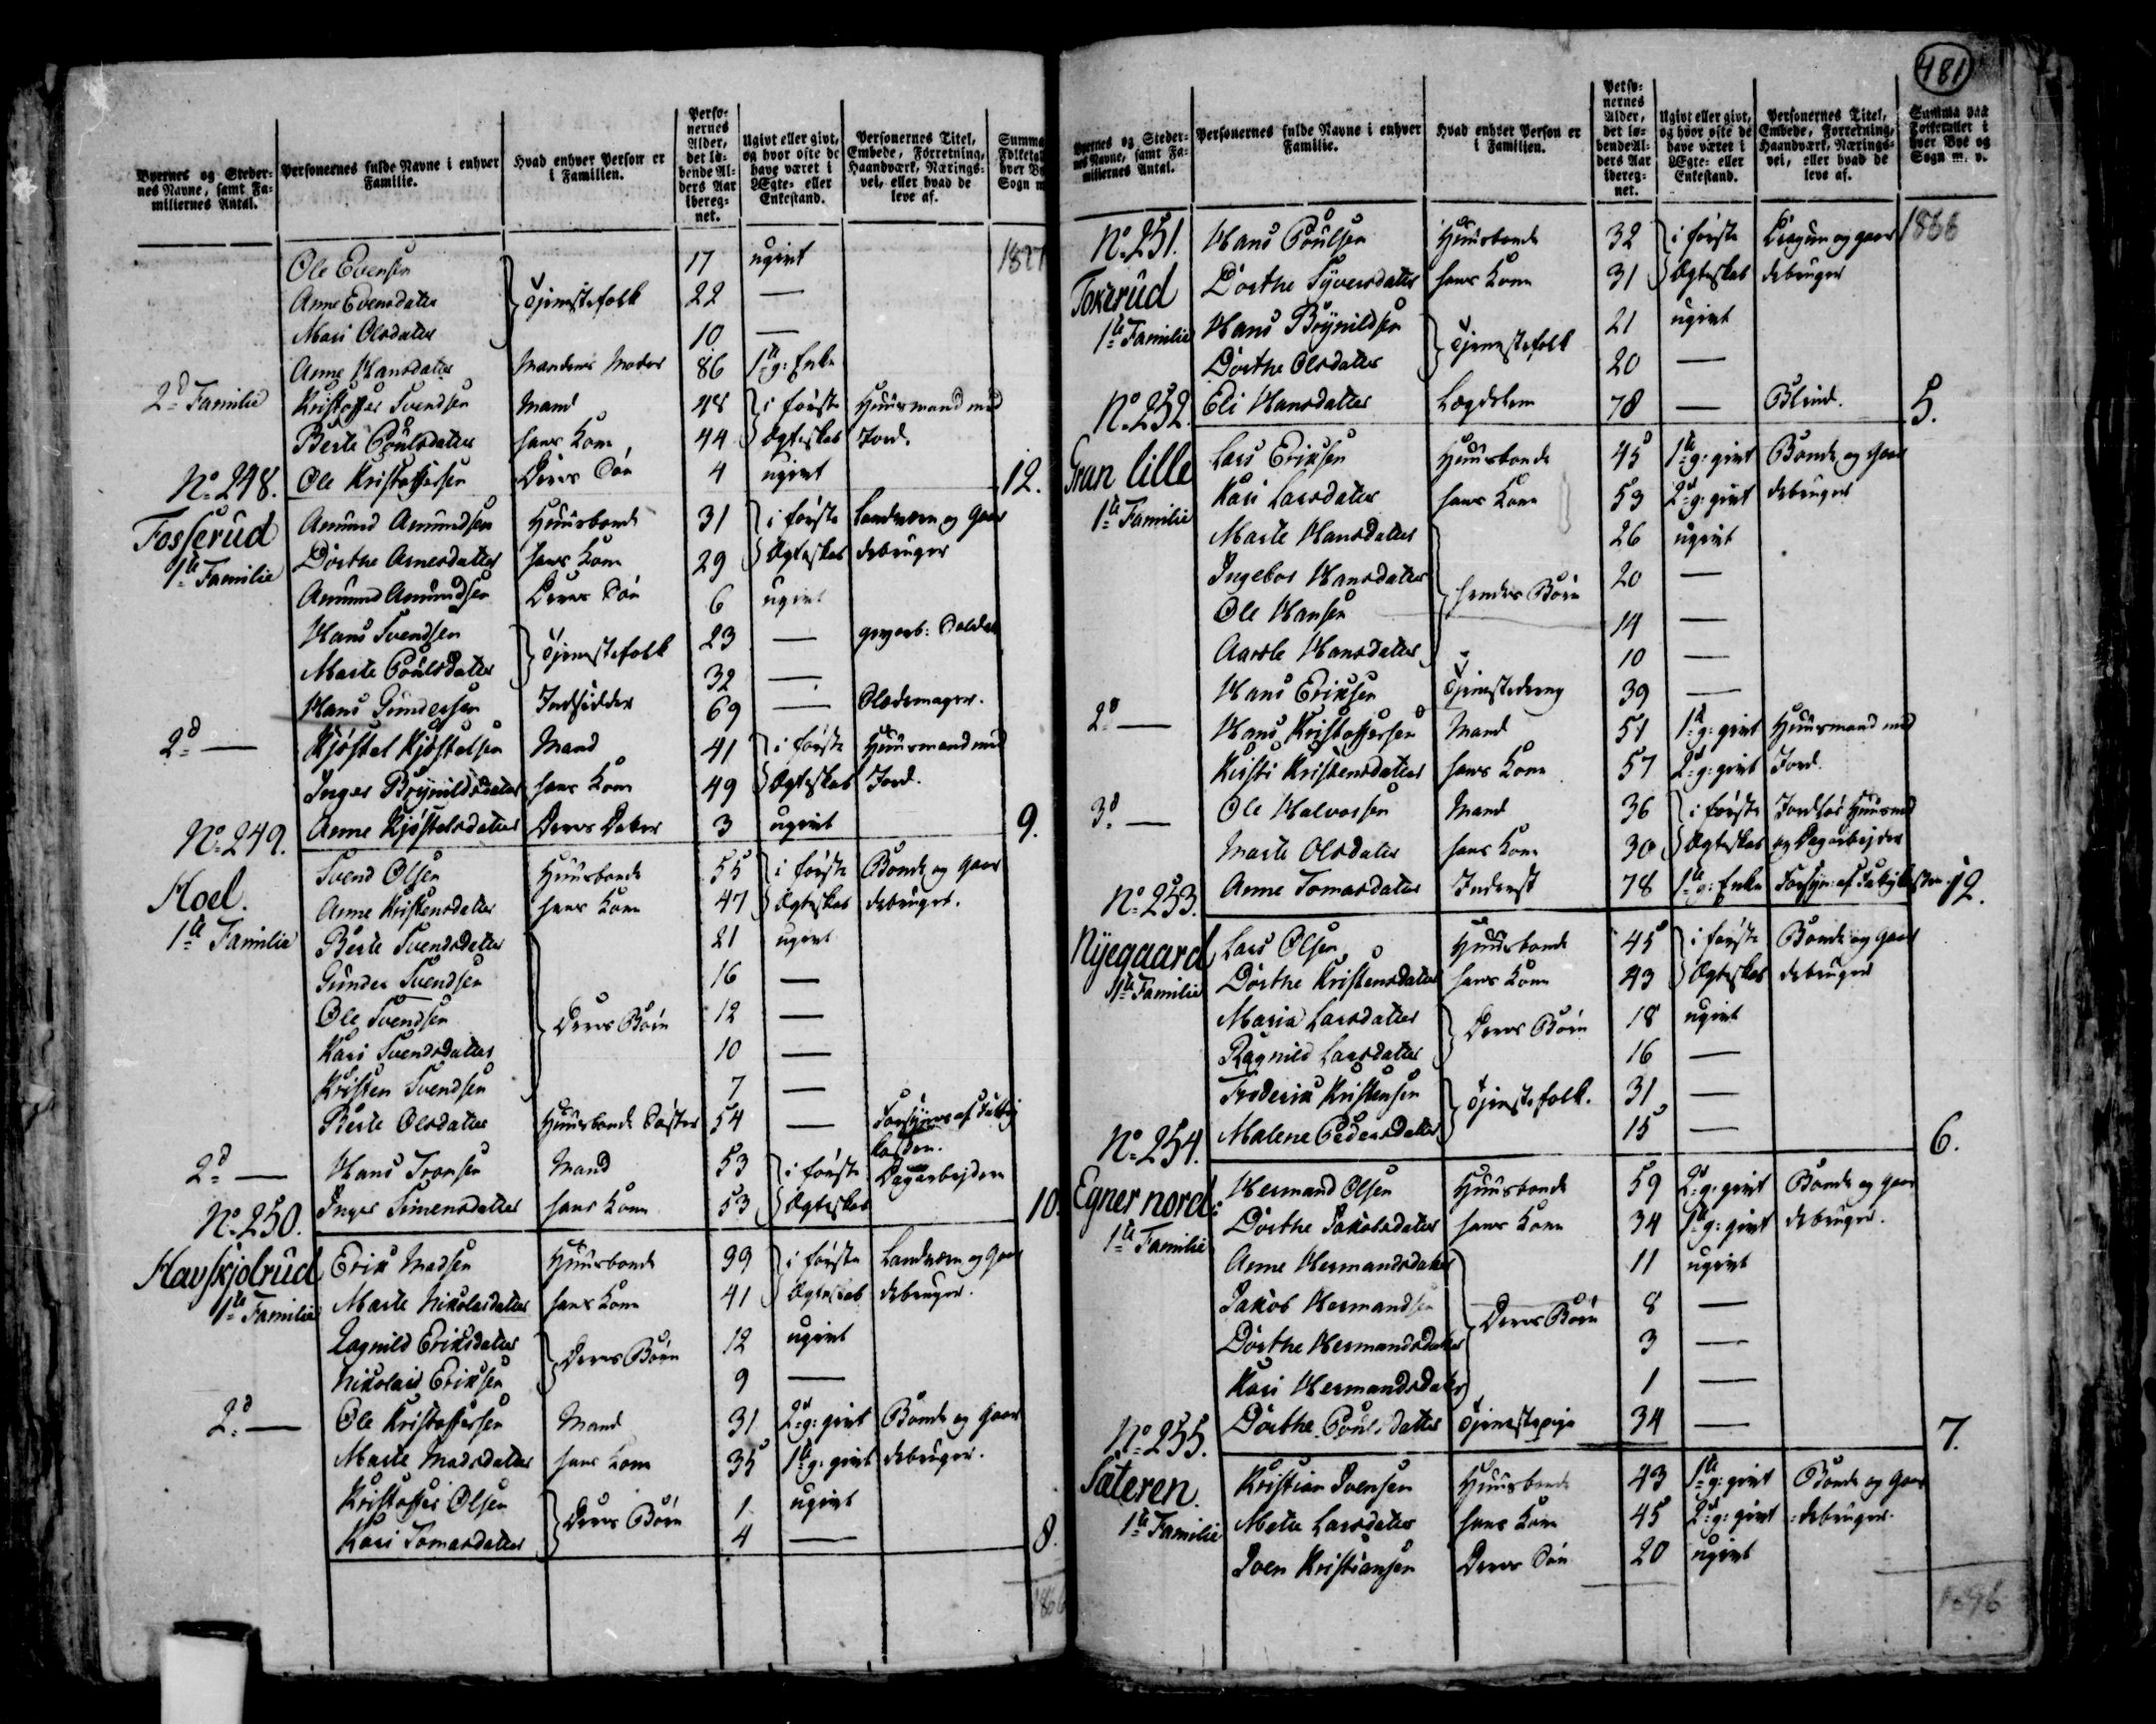 Byernes og Stedernes Navne, samt Familiernes Antal. | Personernes fulde Navne i enhver Familie. | Hvad enhver Person er i Familien. | Personernes Alder, det løbende Alders Aar iberegnet. | Ugivt eller givt, og hvor ofte de have været i Ægte- eller Enkestand. | Personernes Titel, Embede, Forretning, Haandværk, Næringsvei, eller hvad de leve af. | Summa Folketal hver By Sogn m
Ole Evensen 17 ugivt 1827
Anne Evensdatter } Tjenestefolk 22 —
Mari Olsdatter 10 —
Anne Hansdatter Mandens Moder 86 1te g: Enke
2d Familie Kristoffer Svendsen Mand 48 } i første Huusmand med
Berte Poulsdatter hans Kone 44 } Ægteskab Jord.
No. 248. Ole Kristoffersen Deres Søn 4 ugivt 12.
Fosserud Amund Amundsen Huusbonde 31 } i første Landværn og Gaar
1te Familie Dorthe Arnesdatter hans Kone 29 } Ægteskab debruger
Amund Amundsen Deres Søn 6 ugivt
Hans Svendsen } Tjenestefolk 23 — gevorb: Soldat
Marte Poulsdatter 32 —
Hans Gundersen Indsidder 69 —
2d — Kjøstel Kjøstelsen Mand 41 } i første Huusmand med
Inger Brynildsdatter hans Kone 49 } Ægteskab Jord.
No. 249. Anne Kjøstelsdatter Deres Dater 3 ugivt 9.
Hoel. Svend Olsen Huusbonde 55 } i første Bonde og Gaar
Anne Kristensdatter hans Kone 47 } Ægteskab debruger.
1te Familie Berte Svendsdatter 21 ugivt
Gunder Svendsen 16 —
Ole Svendsen } Deres Børn 12 —
Kari Svendsdatter 10 —
Kristen Svendsen 7 —
Berte Olsdatter Huusbonde Søster 54 — Forsynes af Fattig
Kassen.
2d — Hans Tronsen Mand 53 } i første Dagarbejdere
No. 250. Inger Simensdatter hans Kone 53 } Ægteskab 10
Havskjolrud Erik Madsen Huusbonde 39 } i første Landværn og Gaar
1te Familie Marte Nikolaisdatter hans Kone 41 } Ægteskab debruger.
Ragnild Eriksdatter } Deres Børn 12 ugivt
Nikolai Eriksen 9 —
2d — Ole Kristoffersen Mand 31 2d g: givt Bonde og Gaar
Marte Madsdatter hans Kone 35 1te g: givt debruger.
Kristoffer Olsen } Deres Børn 1 ugivt
Kari Tomasdatter 4 — 8.
1866
481
Byernes og Stedernes Navne, samt Familiernes Antal. | Personernes fulde Navne i enhver Familie. | Hvad enhver Person er i Familien. | Personernes Alder, det løbende Alders Aar iberegnet. | Ugivt eller givt, og hvor ofte de have været i Ægte- eller Enkestand. | Personernes Titel, Embede, Forretning, Haandværk, Næringsvei, eller hvad de leve af. | Summa paa Folketallet i hver Bye og Sogn m. v.
No. 251. Hans Poulsen Huusbonde 32 } i første Dragun og gaar 1866
Toxerud Dorthe Syversdatter hans Kone 31 } Ægteskab debruger
1te Familie Hans Brynildsen } Tjenestefolk 21 ugivt
Dorthe Olsdatter 20 —
No. 252. Eli Hansdatter Lægdslem 78 — Blind. 5.
Gran lille Lars Eriksen Huusbonde 45 1te g: givt Bonde og Gaar
1te Familie Kari Larsdatter hans Kone 53 2d g: givt debruger
Marte Hansdatter 26 ugivt
Ingebor Hansdatter } hendes Børn 20 —
Ole Hansen 14 —
Aarole Hansdatter 10 —
Hans Eriksen Tjenestedreng 39 —
2d — Hans Kristoffersen Mand 51 1te g: givt Huusmand med
Kirsti Kristensdatter hans Kone 57 2d g: givt Jord.
3d — Ole Halvorsen Mand 36 } i første Jordløs Huusmd
Marte Olsdatter hans Kone 30 } Ægteskab og Dagarbejder
No. 253. Anne Tomasdatter Inderst 78 1te g: Enke 12.
Nyegaard Lars Olsen Huusbonde 45 } i første Bonde og Gaar
1te Familie Dorthe Kristensdatter hans Kone 43 } Ægteskab debruger
Maria Larsdatter } Deres Børn 18 ugivt
Ragnild Larsdatter 16 —
Frederik Kristensen } Tjenestefolk. 31 —
No. 254. Malene Pedersdatter 15 — 6.
Egner nord: Hermand Olsen Huusbonde 59 2d g: givt Bonde og gaar
1te Familie Dorthe Jakobsdatter hans Kone 34 1te g: givt debruger.
Anne Hermandsdatter 11 ugivt
Jakob Hermandsen } Deres Børn 8 —
Dorthe Hermandsdatter 3 —
Kari Hermandsdatter 1 —
No. 255. Dorthe Poulsdatter Tjenestepige 34 — 7.
Sateren. Kristian Ivensen Huusbonde 43 1te g: givt Bonde og Gaar
1te Familie Mette Larsdatter hans Kone 45 2d g: givt debruger.
Iven Kristiansen Deres Søn 20 ugivt
1896